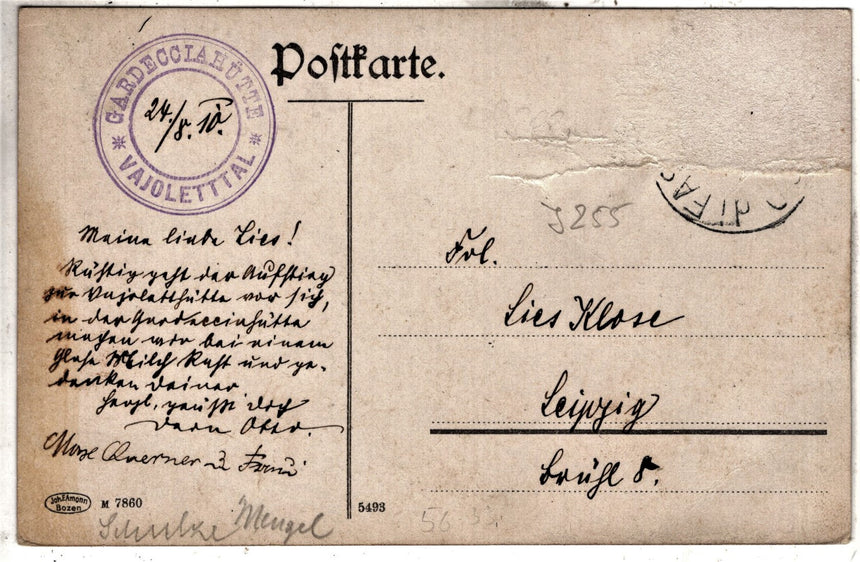 Postkarte.
GARDECCIAHÜTTE
* VAJOLETTTAL *
24./8. 10.
Meine liebe Lies!
Rüstig geht der Aufstieg
zur Vajoletthütte vor sich,
in der Gardecciahütte
machen wir bei einem
Glase Milch Rast und ge-
denken Deiner
Herzl. grüßt Dich
Dein Otto.
Querner u Frau
Joh. F. Amonn
Bozen
M 7860
5493
Schulze Mengel
di FAS
J255
Frl.
Lies Klose
Leipzig
Brühl 8.
56